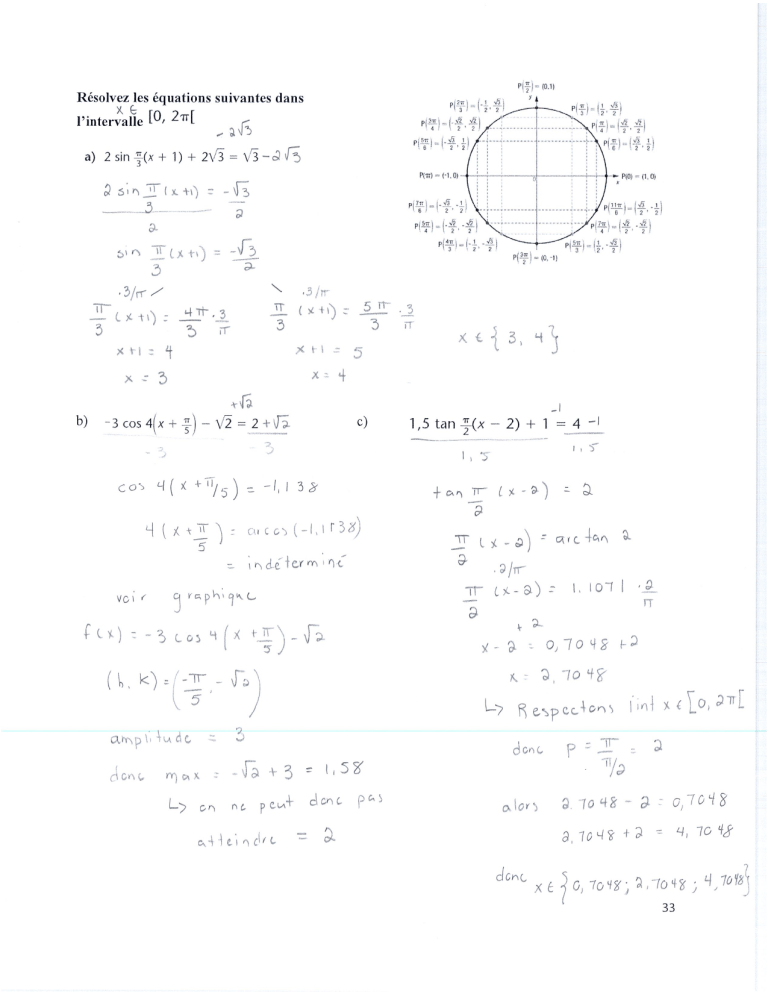 Résolvez les équations suivantes dans
x ∈
l'intervalle [0, 2π[
- 2√3
a) 2 sin π/3(x + 1) + 2√3 = √3 - 2√3
2 sin π/3 (x+1) = -√3
2 2
sin π/3 (x+1) = -√3/2
·3/π ·3/π
π/3 (x+1) = 4π/3 · 3/π
x+1 = 4
x = 3
π/3 (x+1) = 5π/3 · 3/π
x+1 = 5
x = 4
x ∈ {3, 4}
P(π/2) = (0,1)
y
P(2π/3) = (-1/2, √3/2)
P(π/3) = (1/2, √3/2)
P(3π/4) = (-√2/2, √2/2)
P(π/4) = (√2/2, √2/2)
P(5π/6) = (-√3/2, 1/2)
P(π/6) = (√3/2, 1/2)
P(π) = (-1, 0)
0
P(0) = (1, 0)
x
P(7π/6) = (-√3/2, -1/2)
P(11π/6) = (√3/2, -1/2)
P(5π/4) = (-√2/2, -√2/2)
P(7π/4) = (√2/2, -√2/2)
P(4π/3) = (-1/2, -√3/2)
P(5π/3) = (1/2, -√3/2)
P(3π/2) = (0, -1)
+√2
b) -3 cos 4(x + π/5) - √2 = 2 + √2
-3 -3
cos 4(x + π/5) = -1,138
4(x + π/5) = arccos(-1,1138)
= indéterminé
voir graphique
f(x) = -3 cos 4(x + π/5) - √2
(h, k) = (-π/5, -√2)
amplitude = 3
donc max = -√2 + 3 = 1,58
↳ on ne peut donc pas
atteindre = 2
-1
c) 1,5 tan π/2(x - 2) + 1 = 4 -1
1,5 1,5
tan π/2 (x-2) = 2
π/2 (x-2) = arctan 2
·2/π
π/2 (x-2) = 1.1071 · 2/π
+ 2
x - 2 = 0,7048 + 2
x = 2,7048
↳ Respectons l'int x ∈ [0, 2π[
donc P = π/π/2 = 2
alors 2.7048 - 2 = 0,7048
2,7048 + 2 = 4,7048
donc x ∈ {0,7048; 2,7048; 4,7048}
33